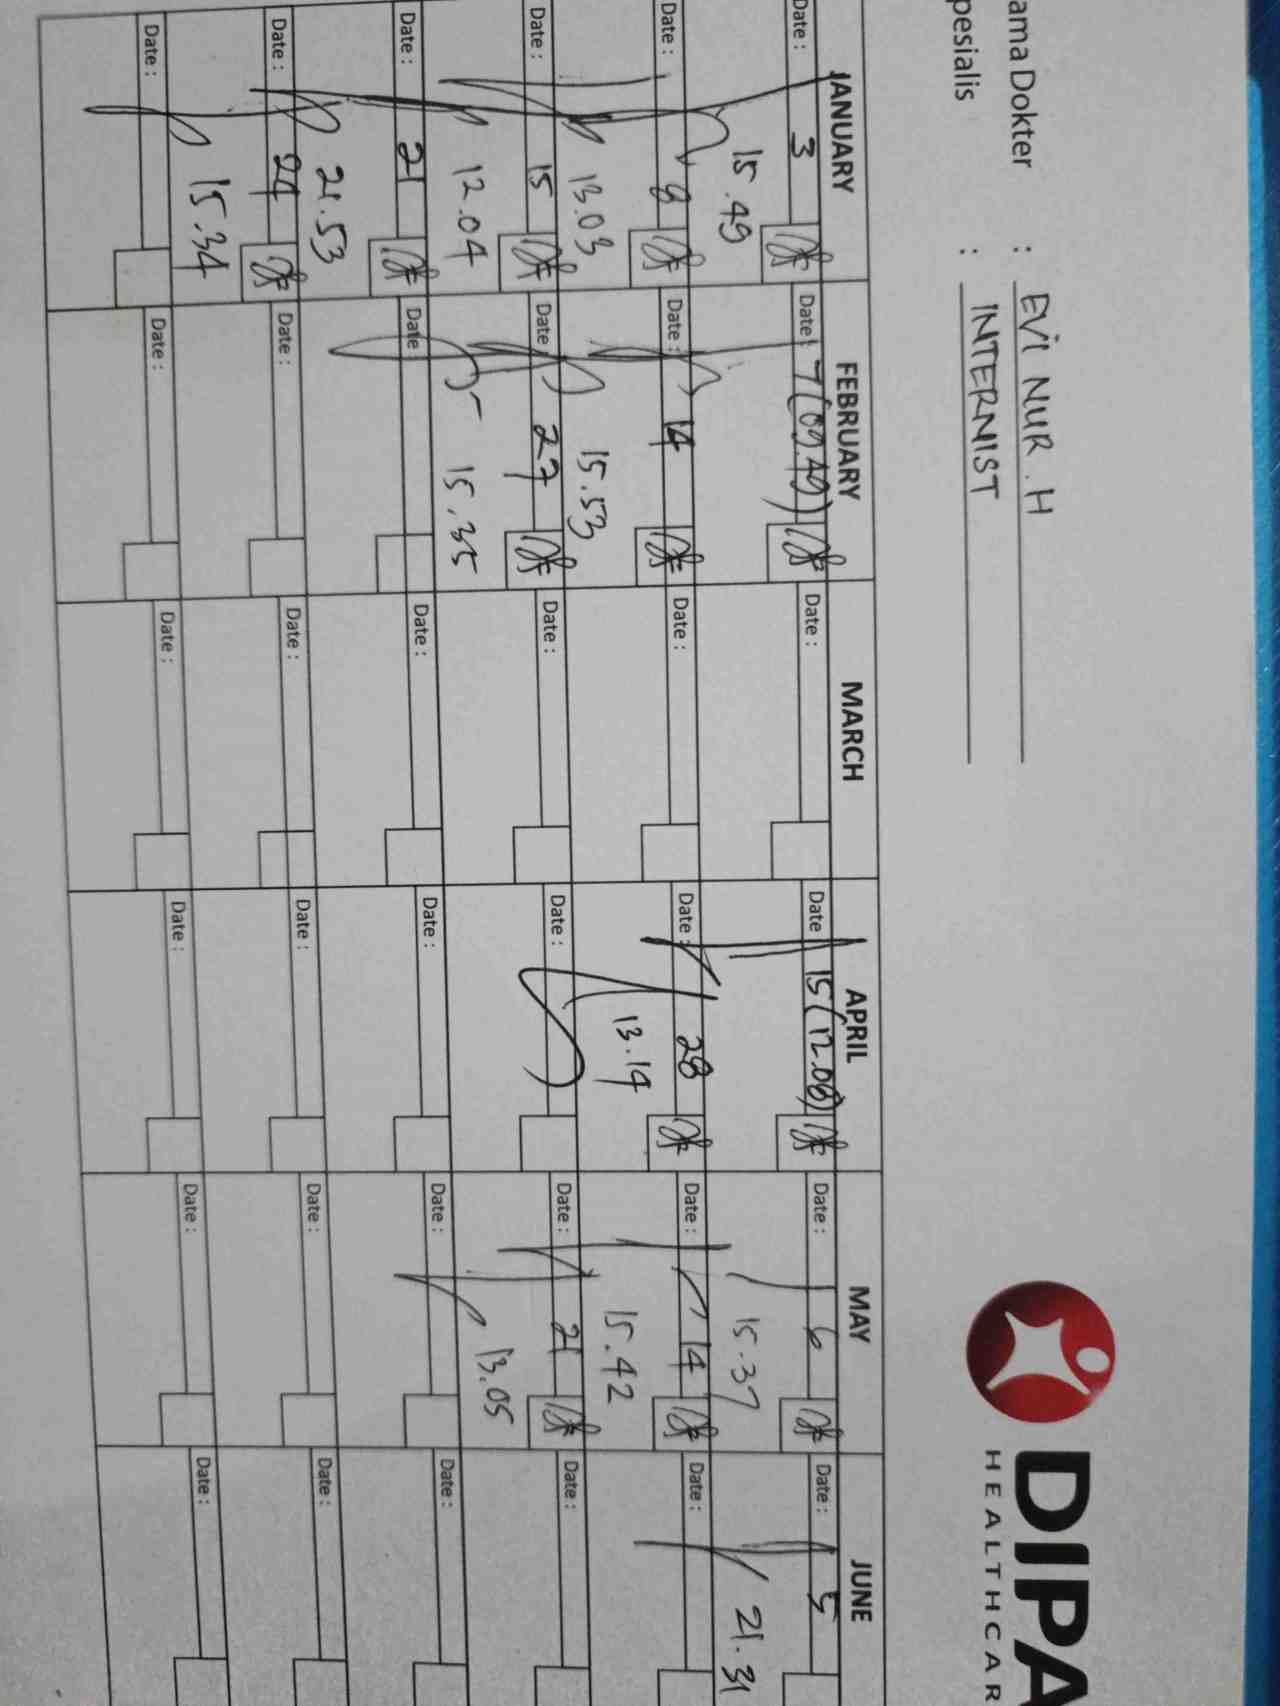 ama Dokter : EVI NUR . H
pesialis : INTERNIST
DIPA
HEALTHCAR
JANUARY FEBRUARY MARCH APRIL MAY JUNE
Date : 3 Date : 7 (09.49) Date : Date 15 (12.08) Date : 6 Date : 5
15.49 15.37 21.31
Date : 8 Date : 14 Date : Date : 28 Date : 14 Date :
13.03 15.53 13.14 15.42
Date : 15 Date : 27 Date : Date : Date : 21 Date :
12.04 15.35 13.05
Date : 21 Date Date : Date : Date : Date :
21.53
Date : 24 Date : Date : Date : Date : Date :
15.34
Date : Date : Date : Date : Date : Date :